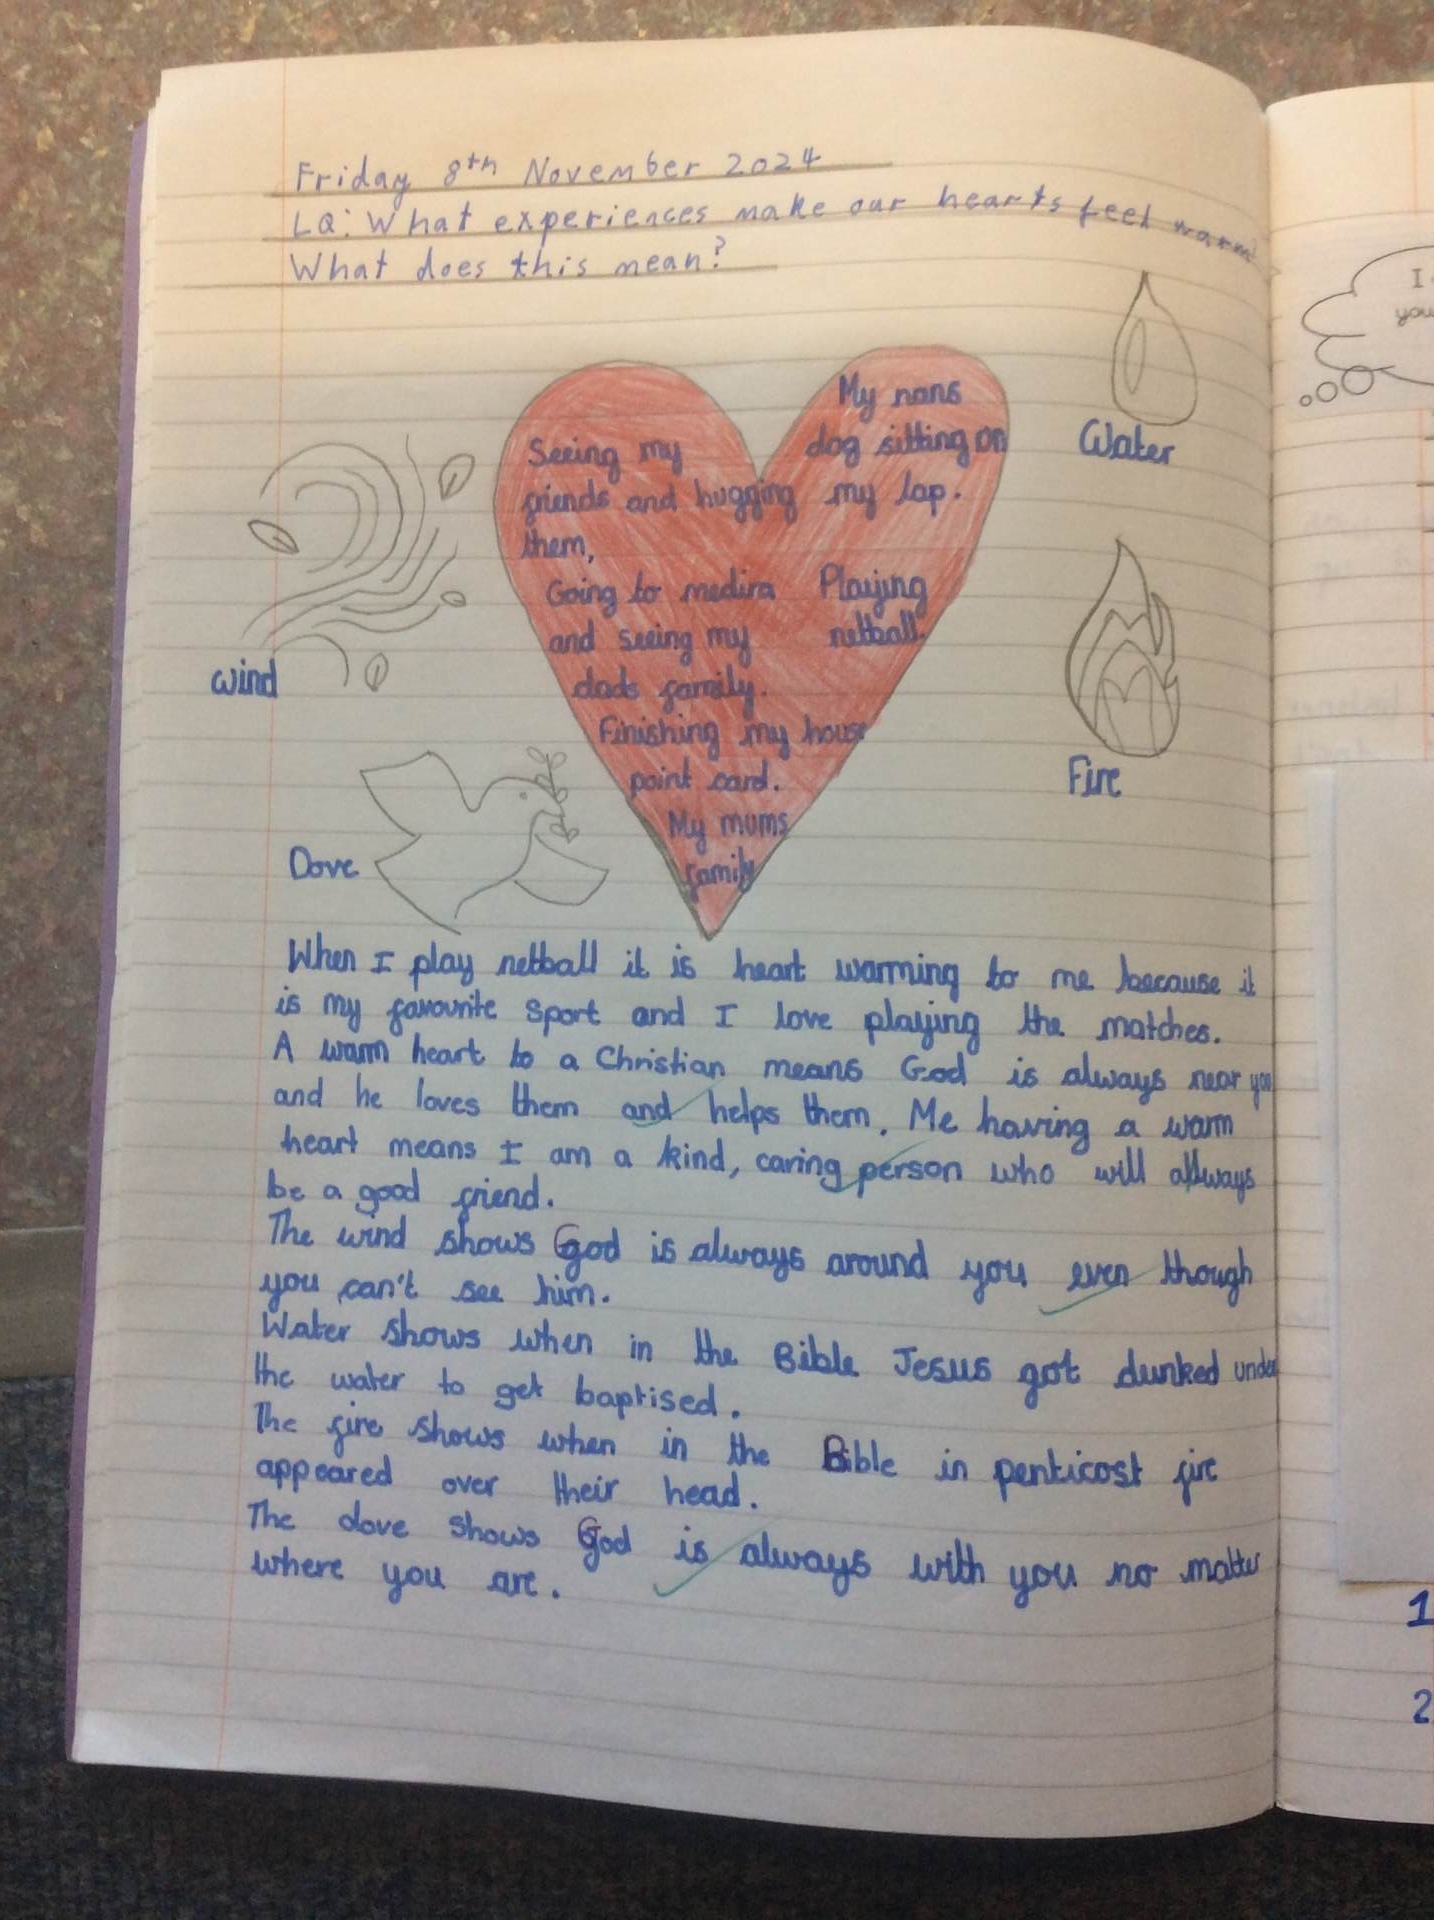 Friday 8th November 2024
LQ: What experiences make our hearts feel warm?
What does this mean?
My nans
dog sitting on
my lap.
Seeing my
friends and hugging
them,
Going to medira
and seeing my
dads family.
Playing
netball.
Finishing my house
point card.
My mums
family
Water
wind
Fire
Dove
When I play netball it is heart warming to me because it
is my favourite sport and I love playing the matches.
A warm heart to a Christian means God is always near you
and he loves them and helps them. Me having a warm
heart means I am a kind, caring person who will always
be a good friend.
The wind shows God is always around you even though
you can't see him.
Water shows when in the Bible Jesus got dunked under
the water to get baptised.
The fire shows when in the Bible in penticost fire
appeared over their head.
The dove shows God is always with you no matter
where you are.
I
you
1
2